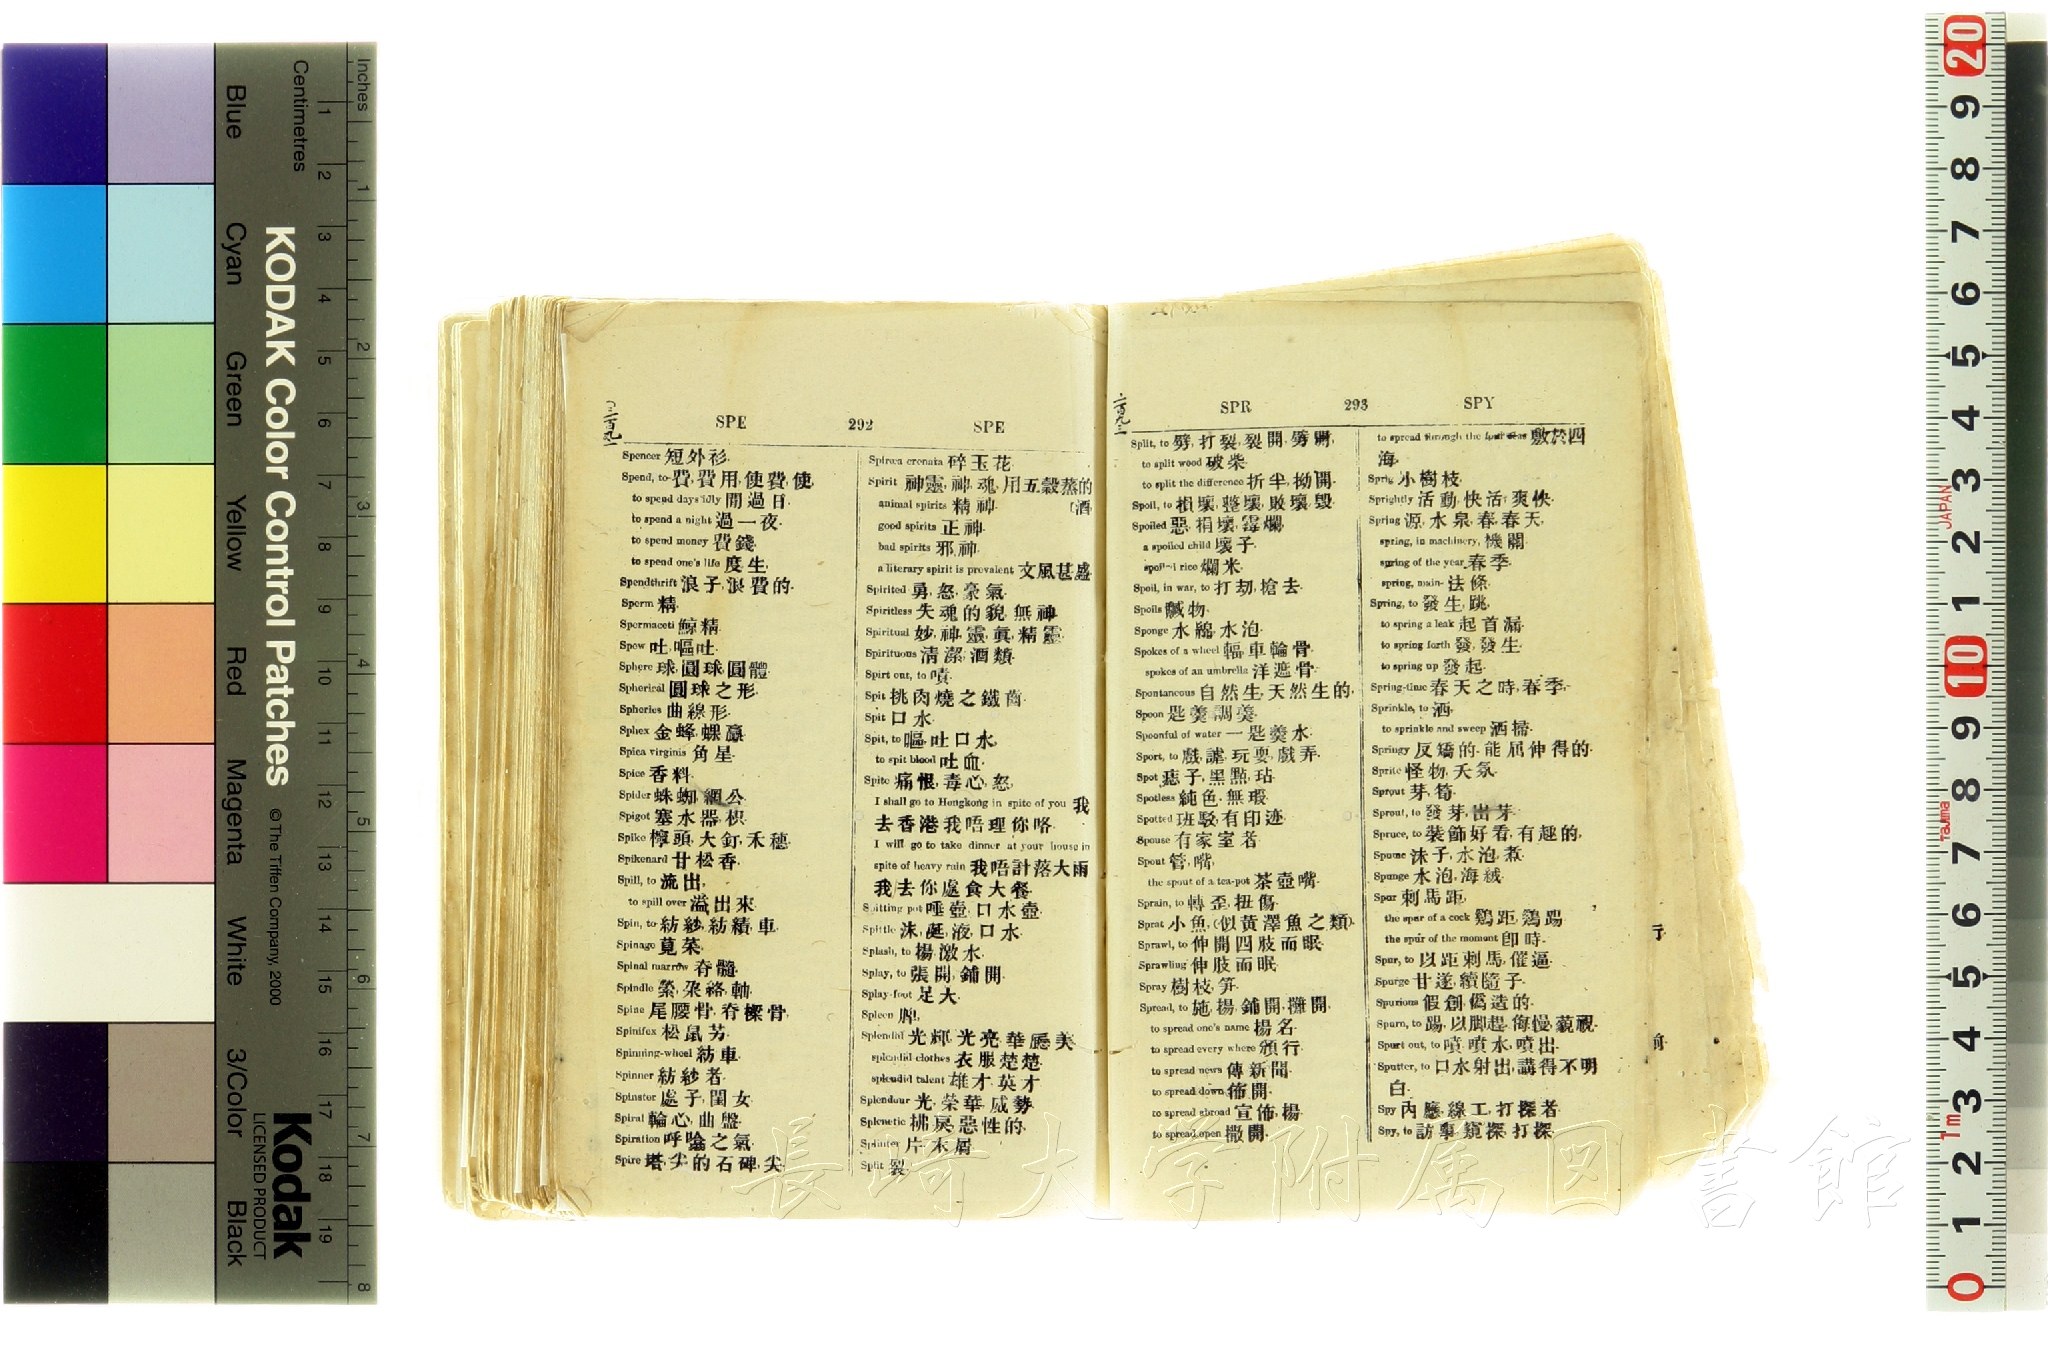 SPE 292 SPE
Spencer 短外衫.
Spend, to 費, 費用, 使費, 使
to spend days idly 閒過日.
to spend a night 過一夜.
to spend money 費錢.
to spend one's life 度生.
Spendthrift 浪子, 浪費的.
Sperm 精.
Spermaceti 鯨精.
Spew 吐, 嘔吐.
Sphere 球, 圓球, 圓體.
Spherical 圓球之形.
Spheries 曲線形.
Sphex 金蜂, 螺蠃
Spica virginis 角星.
Spice 香料.
Spider 蛛蜘, 網公
Spigot 塞水器, 枳.
Spike 樽頭, 大釘, 禾穗.
Spikenard 甘松香.
Spill, to 流出,
to spill over 溢出來.
Spin, to 紡紗, 紡績, 車.
Spinage 莧菜.
Spinal marrow 脊髓.
Spindle
Spine 尾腰骨, 脊樑骨.
Spinifex 松鼠芳.
Spinning-wheel 紡車.
Spinner 紡紗者.
Spinster 處子, 閨女.
Spiral 輪心, 曲盤.
Spiration 呼噏之氣.
Spire 塔, 尖的石碑, 尖.
Spiræa crenata 碎玉花.
Spirit 神靈, 神, 魂, 用五穀蒸的
animal spirits 精神. 〔酒
good spirits 正神.
bad spirits 邪神.
a literary spirit is prevalent 文風甚盛
Spirited 勇, 怒, 豪氣.
Spiritless 失魂的貌, 無神
Spiritual 妙, 神, 靈, 眞, 精靈.
Spirituous 清潔, 酒類.
Spirt out, to 噴.
Spit 挑肉燒之鐵
Spit 口水.
Spit, to 嘔, 吐口水,
to spit blood 吐血.
Spite 痛恨, 毒心, 怒,
I shall go to Hongkong in spite of you 我
去香港我唔理你咯.
I will go to take dinner at your house in
spite of heavy rain 我唔計落大雨
我去你處食大餐.
Spitting pot 唾壺, 口水壺.
Spittle 沫, 涎, 液, 口水.
Splash, to 楊激水.
Splay, to 張開, 鋪開.
Splay-foot 足大.
Spleen 脾.
Splendid 光輝, 光亮, 華麗, 美
splendid clothes 衣服楚楚.
splendid talent 雄才, 英才
Splendour 光, 榮華, 威勢.
Splenetic 拂戾, 惡性的.
Splinter 片, 木屑.
Split 裂.
SPR 293 SPY
Split, to 劈, 打裂, 裂開, 劈開,
to split wood 破柴.
to split the difference 折半, 拗開.
Spoil, to 損壞, 整壞, 敗壞, 毀.
Spoiled 惡, 損壞, 霉爛,
a spoiled child 壞子.
spoiled rice 爛米.
Spoil, in war, to 打刼, 搶去.
Spoils 物.
Sponge 水綿, 水泡.
Spokes of a wheel 輻, 車輪骨.
spokes of an umbrella 洋遮骨.
Spontaneous 自然生, 天然生的.
Spoon 匙羹, 調羹.
Spoonful of water 一匙羹水.
Sport, to 戲謔, 玩耍, 戲弄.
Spot 痣子, 黑點, 玷.
Spotless 純色, 無瑕.
Spotted 班駁, 有印迹.
Spouse 有家室者.
Spout 管, 嘴.
the spout of a tea-pot 茶壺嘴.
Sprain, to 轉歪, 扭傷.
Sprat 小魚, (似黃澤魚之類).
Sprawl, to 伸開四肢而眠.
Sprawling 伸肢而眠.
Spray 樹枝, 笋.
Spread, to 施, 揚, 鋪開, 攤開.
to spread one's name 揚名.
to spread every where 頒行.
to spread news 傳新聞.
to spread down 佈開.
to spread abroad 宣佈, 楊.
to spread open 撒開.
to spread through the four seas 敷於四
海.
Sprig 小樹枝.
Sprightly 活動, 快活, 爽快.
Spring 源, 水泉, 春, 春天,
spring, in machinery, 機關.
spring of the year 春季.
spring, main- 法條.
Spring, to 發生, 跳.
to spring a leak 起首漏.
to spring forth 發, 發生.
to spring up 發起.
Spring-time 春天之時, 春季,
Sprinkle, to 洒.
to sprinkle and sweep 洒掃.
Springy 反矯的, 能屈伸得的.
Sprite 怪物, 夭氛.
Sprout 芽, 筍.
Sprout, to 發芽, 出芽.
Spruce, to 裝飾好看, 有趣的,
Spume 沫子, 水泡, 煮.
Spunge 水泡, 海絨.
Spur 刺馬距,
the spur of a cock 鷄距, 鷄踢
the spur of the moment 卽時.
Spur, to 以距刺馬, 催逼.
Spurge 甘遂, 續隨子.
Spurious 假創, 僞造的.
Spurn, to 踢, 以脚趕, 侮慢, 藐視.
Spurt out, to 噴, 噴水, 噴出.
Sputter, to 口水射出, 講得不明
白.
Spy 內應, 線工, 打探者.
Spy, to 訪事, 窺探, 打探
行
前
長崎大学附属図書館
Inches
Centimetres
KODAK Color Control Patches
© The Tiffen Company, 2000
Kodak
LICENSED PRODUCT
Blue
Cyan
Green
Yellow
Red
Magenta
White
3/Color
Black
1 2 3 4 5 6 7 8 9 10 11 12 13 14 15 16 17 18 19
1 2 3 4 5 6 7 8
20 9 8 7 6 5 4 3 2 1 10 9 8 7 6 5 4 3 2 1 0
JAPAN
Tajima
1m